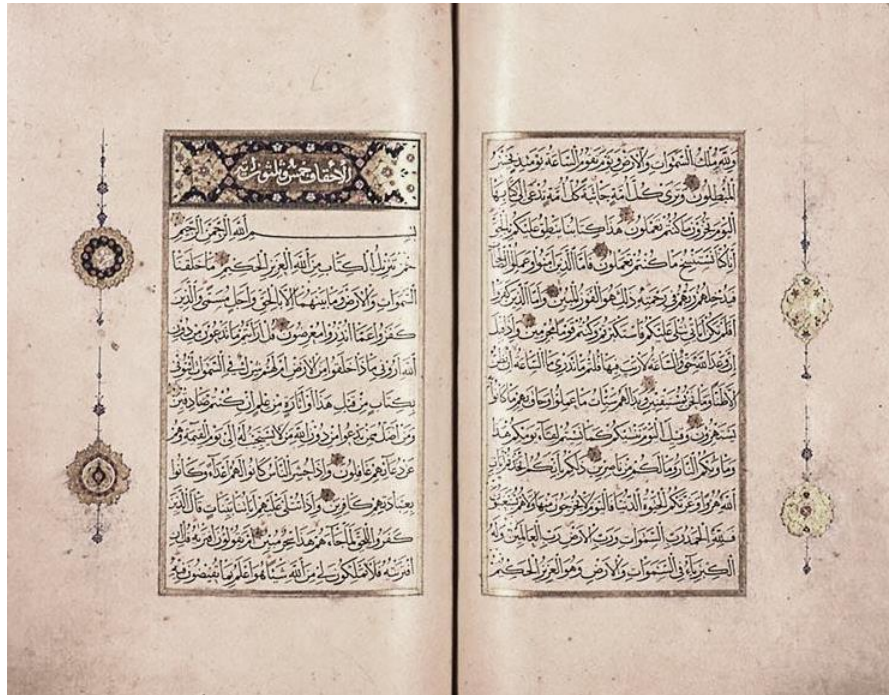 ولله ملك السموات والارض ويوم تقوم الساعة يومئذ يخسر
المبطلون وترى كل امة جاثية كل امة تدعى الى كتابها
اليوم تجزون ما كنتم تعملون هذا كتابنا ينطق عليكم بالحق
انا كنا نستنسخ ما كنتم تعملون فاما الذين امنوا وعملوا الصالحات
فيدخلهم ربهم في رحمته ذلك هو الفوز المبين واما الذين كفروا
افلم تكن اياتي تتلى عليكم فاستكبرتم وكنتم قوما مجرمين واذا قيل
ان وعد الله حق والساعة لا ريب فيها قلتم ما ندري ما الساعة ان نظن
الا ظنا وما نحن بمستيقنين وبدا لهم سيئات ما عملوا وحاق بهم ما كانوا
به يستهزؤن وقيل اليوم ننسيكم كما نسيتم لقاء يومكم هذا
وماويكم النار وما لكم من ناصرين ذلكم بانكم اتخذتم ايات
الله هزوا وغرتكم الحيوة الدنيا فاليوم لا يخرجون منها ولا هم يستعتبون
فلله الحمد رب السموات ورب الارض رب العالمين وله
الكبرياء في السموات والارض وهو العزيز الحكيم
الأحقاف خمس وثلثون اية
بسم الله الرحمن الرحيم
حم تنزيل الكتاب من الله العزيز الحكيم ما خلقنا
السموات والارض وما بينهما الا بالحق واجل مسمى والذين
كفروا عما انذروا معرضون قل ارأيتم ما تدعون من دون
الله اروني ماذا خلقوا من الارض ام لهم شرك في السموات ايتوني
بكتاب من قبل هذا او اثارة من علم ان كنتم صادقين
ومن اضل ممن يدعوا من دون الله من لا يستجيب له الى يوم القيمة وهم
عن دعائهم غافلون واذا حشر الناس كانوا لهم اعداء وكانوا
بعبادتهم كافرين واذا تتلى عليهم اياتنا بينات قال الذين
كفروا للحق لما جاءهم هذا سحر مبين ام يقولون افتريه قل ان
افتريته فلا تملكون لي من الله شيئا هو اعلم بما تفيضون فيه